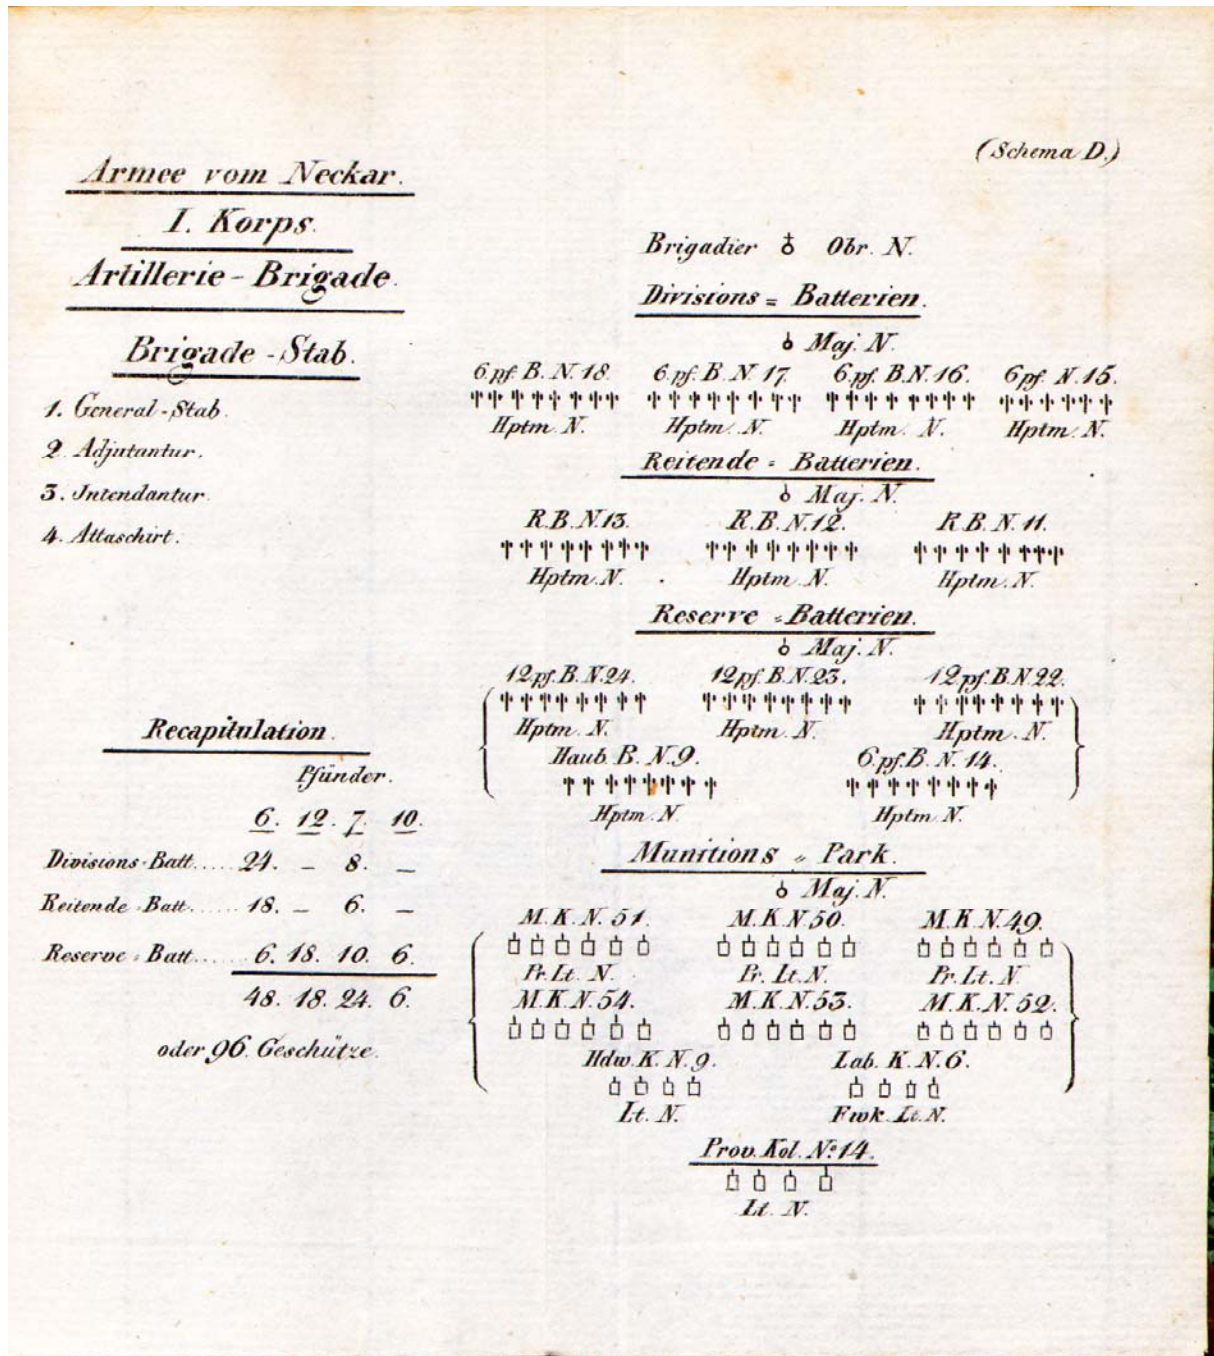 (Schema D.)
Armee vom Neckar.
I. Korps.
Artillerie-Brigade.
Brigade-Stab.
1. General-Stab.
2. Adjutantur.
3. Intendantur.
4. Attaschirt.
Recapitulation.
Pfünder.
6. 12. 7. 10.
Divisions-Batt..... 24. – 8. –
Reitende-Batt...... 18. – 6. –
Reserve-Batt..... 6. 18. 10. 6.
48. 18. 24. 6.
oder 96. Geschütze.
Brigadier Obr. N.
Divisions=Batterien.
Maj. N.
6.pf. B. N. 18. 6.pf. B. N. 17. 6.pf. B. N. 16. 6pf. N. 15.
Hptm. N. Hptm. N. Hptm. N. Hptm. N.
Reitende=Batterien.
Maj. N.
R.B.N.13. R.B.N.12. R.B.N.11.
Hptm. N. Hptm. N. Hptm. N.
Reserve=Batterien.
Maj. N.
12.pf. B. N. 24. 12.pf. B. N. 23. 12.pf. B. N. 22.
Hptm. N. Hptm. N. Hptm. N.
Haub. B. N. 9. 6.pf. B. N. 14.
Hptm. N. Hptm. N.
Munitions=Park.
Maj. N.
M.K.N. 51. M.K.N. 50. M.K.N. 49.
Pr. Lt. N. Pr. Lt. N. Pr. Lt. N.
M.K.N. 54. M.K.N. 53. M.K.N. 52.
Hdw. K. N. 9. Lab. K. N. 6.
Lt. N. Fwk. Lt. N.
Prov. Kol. No. 14.
Lt. N.